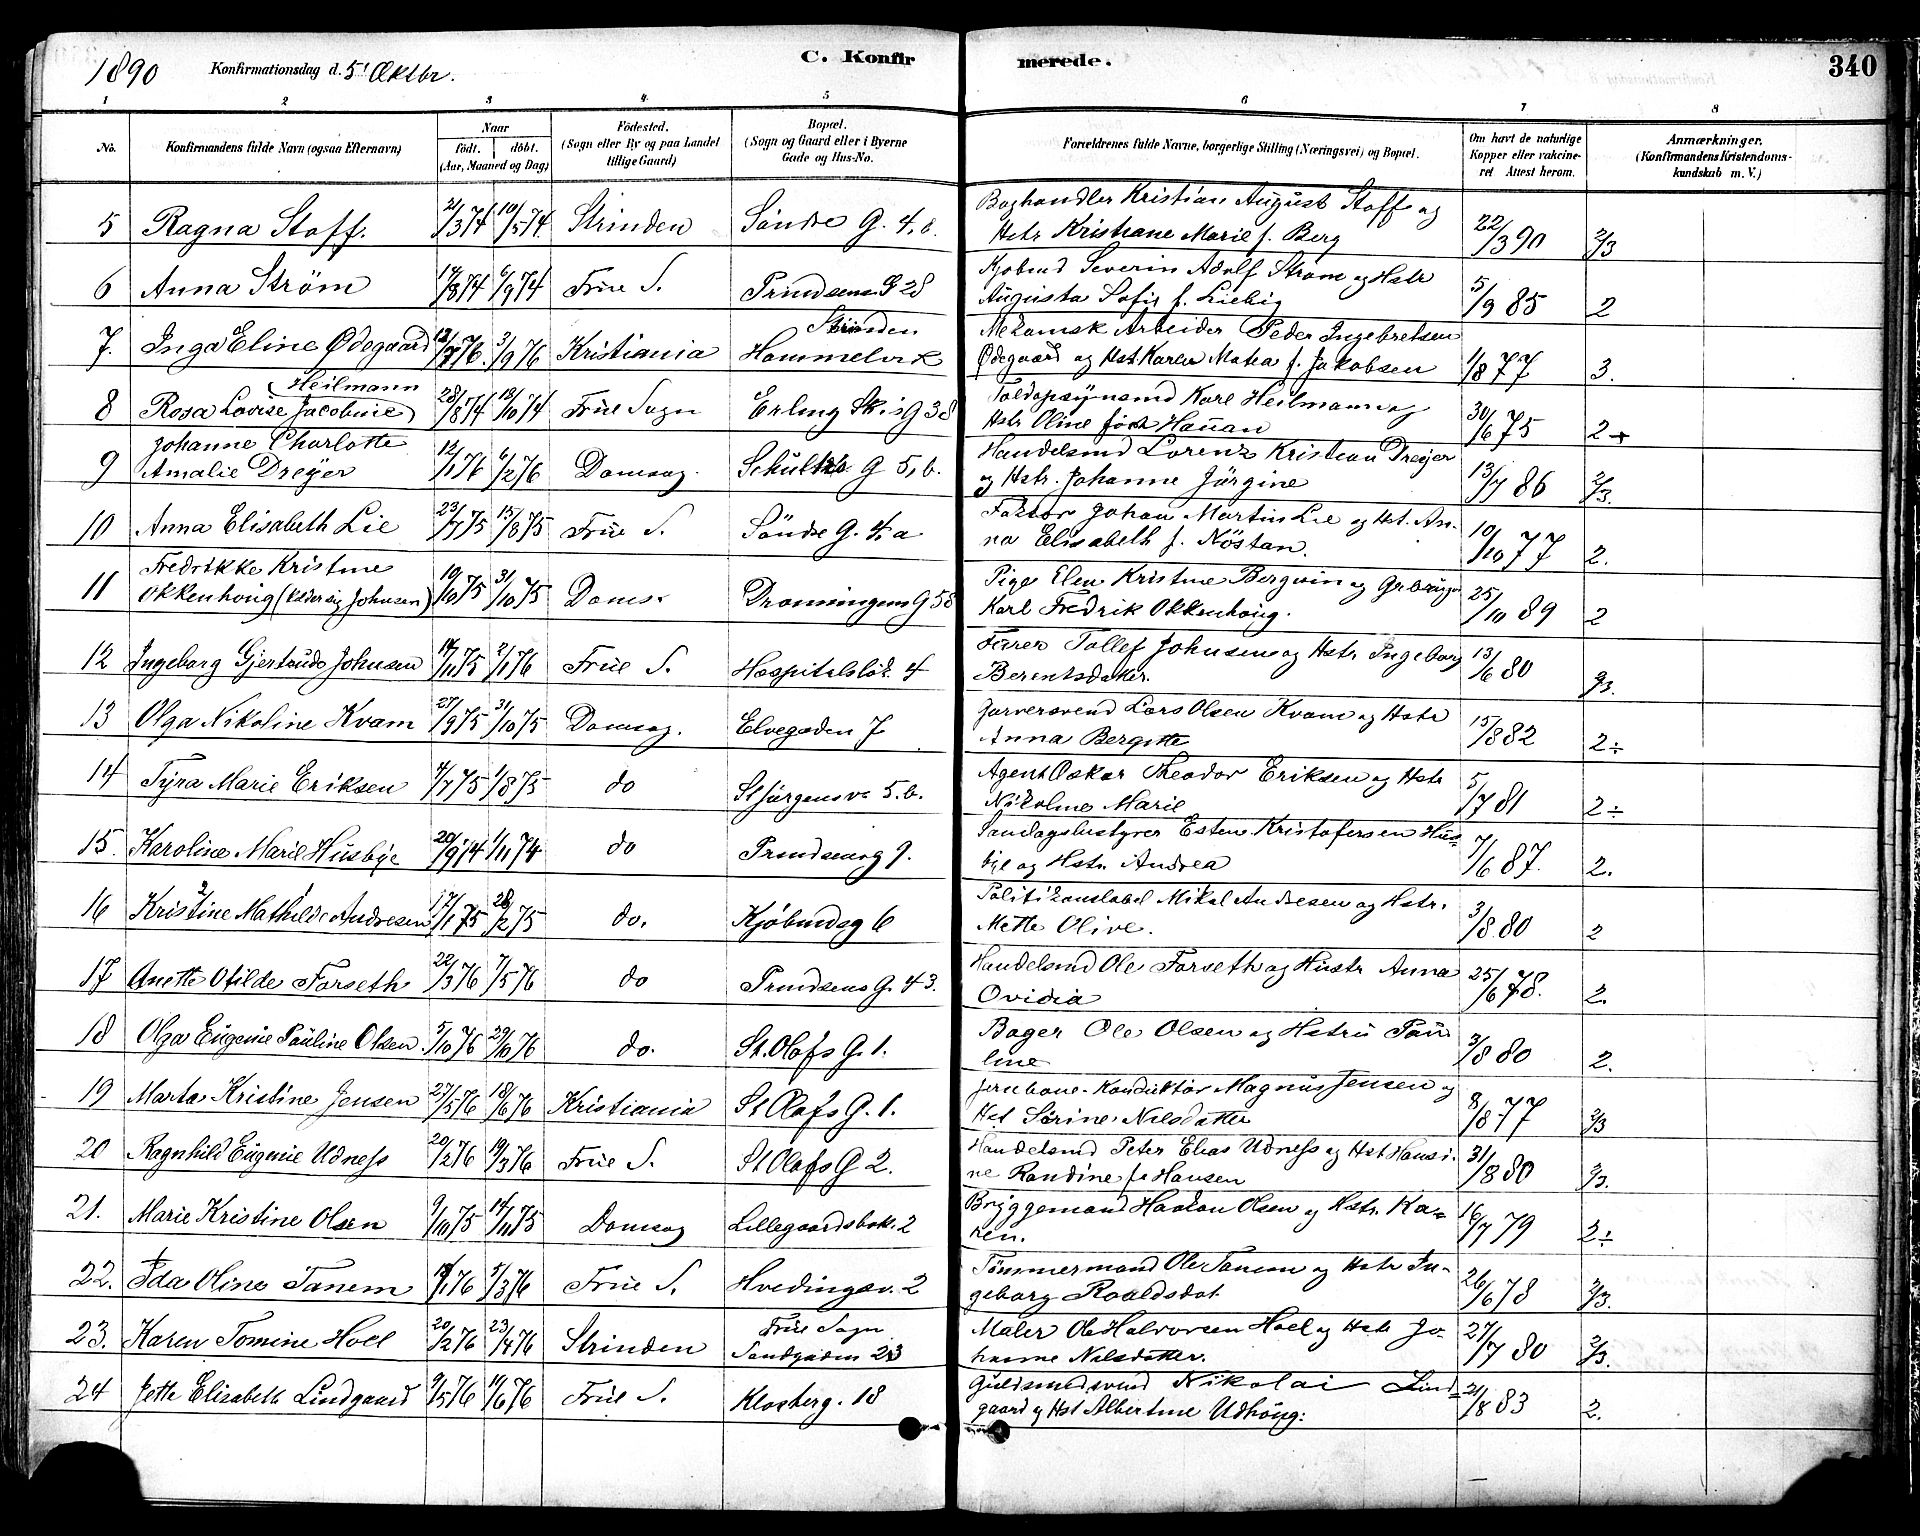 1890 Konfirmationsdag d. 5' Oktbr. C. Konfirmerede. 340
1 2 3 4 5 6 7 8
No. Konfirmandens fulde Navn (ogsaa Efternavn) Naar født. døbt. (Aar, Maaned og Dag) Fødested. (Sogn eller By og paa Landet tillige Gaard) Bopæl. (Sogn og Gaard eller i Byerne Gade og Hus-No. Forældrenes fulde Navne, borgerlige Stilling (Næringsvei) og Bopæl. Om havt de naturlige Kopper eller vakcineret Attest herom. Anmærkninger. (Konfirmandens Kristendomskundskab m. V.)
5 Ragna Stoff. 21/3 74 10/5 74 Strinden Søndre G. 4, b. Boghandler Kristian August Stoff og
Hstr Kristiane Marie f. Berg 22/3 90 2/3
6 Anna Strøm 17/8 74 6/9 74 Frue S. Prindsens G 28 Kjøbmd Severin Adolf Strøm og Hstr
Augusta Sofie f. Liebig 5/9 85 2
7. Inga Eline Ødegaard 12/7 76. 3/9 76 Kristiania Strinden
Hommelvik Mekanisk Arbeider Peder Ingebretsen
Ødegaard og Hst. Karen Matea f. Jakobsen 11/8 77 3.
8 Rosa Lovise Jacobine Heilmann 28/8 74 18/10 74 Frue Sogn Erling Skis G 38 Toldopsynsmd Karl Heilmann og
Hstr Oline født Hauan 30/6 75 2+
9 Johanne Charlotte
Amalie Dreyer 12/1 76 6/2 76 Domsog. Schultz G 5, b. Handelsmd Lorenz Kristian Dreyer
og Hstr. Johanne Jörgine 13/7 86 2/3.
10 Anna Elisabeth Lie 23/7 75 15/8 75 Frue S. Søndre G. 4, a Faktor Johan Martin Lie og Hst. An-
na Elisabeth f. Nöstan. 10/10 77 2.
11 Fredrikke Kristine
Okkenhoug (kalder sig Johnsen) 10/10 75 31/10 75 Doms. Dronningens G 58 Pige Elen Kristine Bergvin og
Karl Fredrik Okkenhoug. 25/10 89 2
12 Ingeborg Gjertrude Johnsen 17/11 75 2/1 76 Frue S. Hospitalsløk. 4 Furer Tollef Johnsen og Hstr Ingeborg
Berentsdatter. 13/6 80 2/3.
13 Olga Nikoline Kvam 27/9 75 31/10 75 Domsog. Elvegaden 7 Garversvend Lars Olsen Kvam og Hstr
Anna Bergitte 15/8 82 2÷
14 Tyra Marie Eriksen 4/7 75 1/8 75 do St Jørgensv. 5. b. Agent Oskar Theodor Eriksen og Hstr
Nikoline Marie 5/7 81 2÷
15. Karoline Marie Husbye 20/9 74 1/11 74 do Prindsensg 9. Esten Kristofersen Hus-
bye og Hstr. Andrea 7/6 87. 2.
16 Kristine Mathilde Andresen 17/1 75 28/2 75 do. Kjøbmdsg 6 Politikonstabel Mikal Andresen og Hstr.
Mette Olive. 3/8 80 2
17 Anette Otilde Forseth 22/3 76 7/5 76 do Prindsens G. 43. Handelsmd Ole Forseth og Hustr Anna
Ovidia 25/6 78. 2.
18 Olga Eugenie Pauline Olsen 5/10 76 29/10 76 do. St. Olafs G. 1. Bager Ole Olsen og Hstru Pau-
line 3/8 80 2.
19 Marta Kristine Jensen 27/5 76 18/6 76 Kristiania St Olafs G. 1. Jernbane-Konduktør Magnus Jensen og
Hst Sørine Nilsdatter 8/8 77 2/3
20 Ragnhild Eugenie Udness 20/2 76 19/3 76 Frue S. St Olafs G 2. Handelsmd Peter Elias Udness og Hst Hansi-
ne Randine f. Hansen 31/8 80 2/3.
21. Marie Kristine Olsen 9/10 75 14/11 75 Domsog Lillegaardsbak. 2 Bryggemand Haakon Olsen og Hstr. Ka-
ren. 16/7 79 2÷
22. Ida Oline Tanem 18/1 76 5/3 76 Frue S. Hvedingsv. 2 Tömmermand Ole Tanem og Hstr In-
geborg Roaldsdat. 26/6 78 2/3.
23. Karen Tomine Hoel 20/2 76 23/4 76 Strinden Frue Sogn
Sandgaden 23 Maler Ole Halvorsen Hoel og Hstr Jo-
hanne Nilsdatter. 27/7 80 2/3.
24 Jette Elisabeth Lindgaard 9/5 76 11/6 76 Frue S. Klosterg. 18 Guldsmedsvend Nikolai Lind-
gaard og Hst Albertine Udhöug: 21/8 83 2.